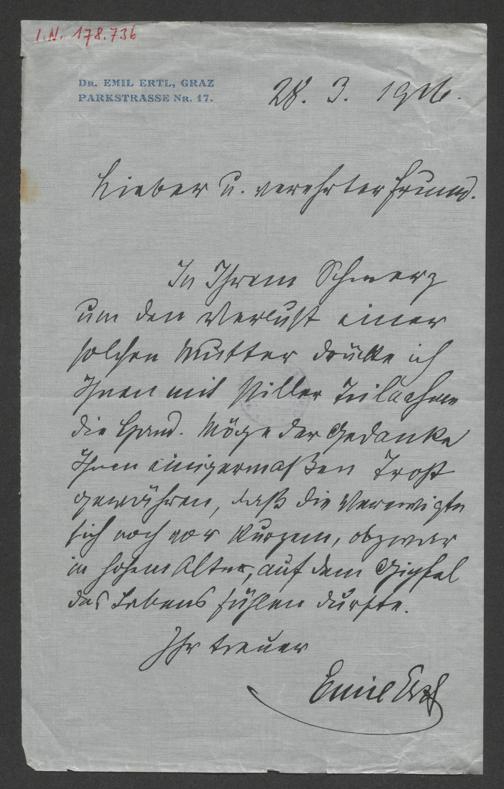 I.N. 178.736
DR. EMIL ERTL, GRAZ
PARKSTRASSE NR. 17.
28. 3. 1916.
Lieber u. verehrter Freund.
In Ihrem Schmerz
um den Verlust einer
solchen Mutter drücke ich
Ihnen mit stiller Teilnahme
die Hand. Möge der Gedanke
Ihnen einigermaßen Trost
gewähren, daß die Verewigte
sich noch vor Kurzem, obzwar
in hohem Alter, auf dem Gipfel
des Lebens fühlen durfte.
Ihr treuer
Emil Ertl